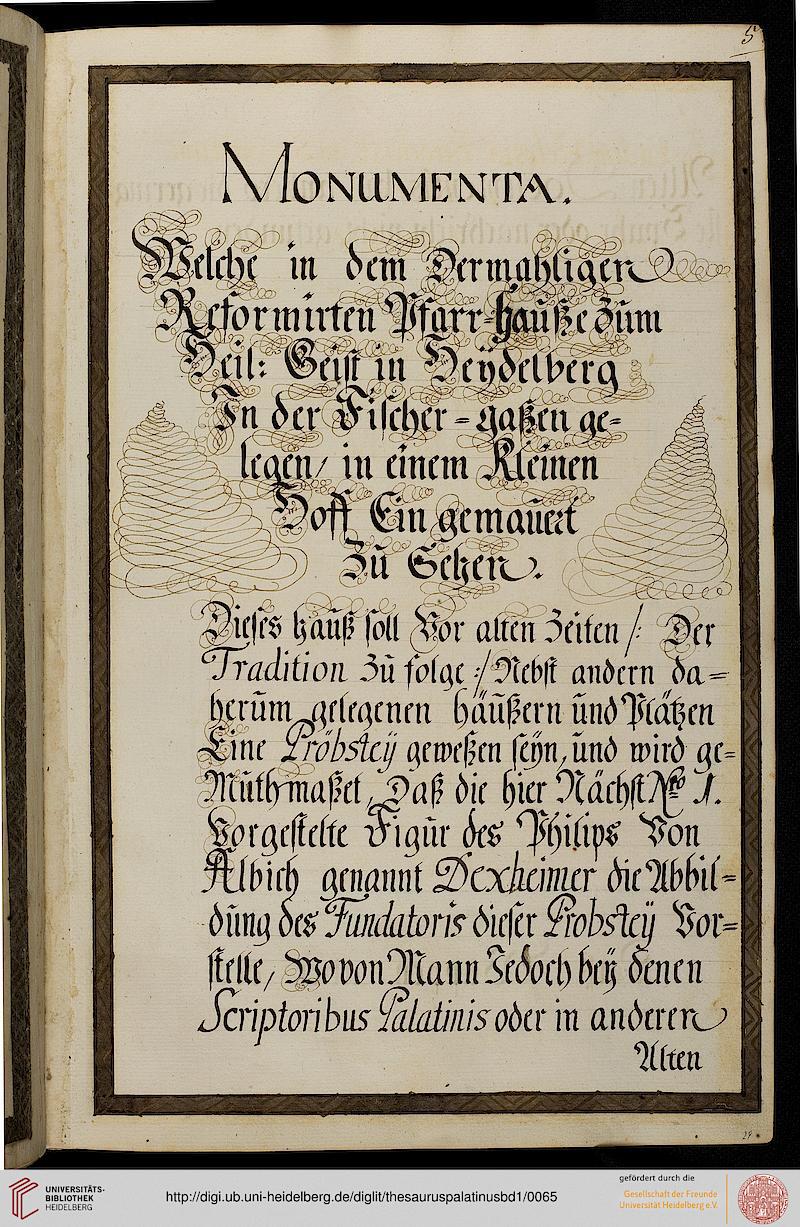 5
MONUMENTA.
Welche in dem Dermahligen
Reformirten Pfarr-haüße Züm
Heil: Geist in Heÿdelberg
In der Fischer-gaßen ge=
legen/ in einem Kleinen
Hoff Ein gemaüert
Zü Sehen.
Dieses haüß soll Vor alten Zeiten /: Der
Tradition Zü folge :/ Nebst andern da=
herüm gelegenen häüßern ünd Plätzen
Eine Pröbsteÿ geweßen seÿn, ünd wird ge=
Müthmaßet, Daß die hier Nächst Nro 1.
Vorgestelte Figür des Philips Von
Albich genannt Dexheimer die Abbil=
düng des Fundatoris dieser Probsteÿ Vor=
stelle, Wovon Mann Jedoch beÿ denen
Scriptoribus Palatinis oder in anderen
Alten
29
UNIVERSITÄTS-
BIBLIOTHEK
HEIDELBERG
http://digi.ub.uni-heidelberg.de/diglit/thesauruspalatinusbd1/0065
gefördert durch die
Gesellschaft der Freunde
Universität Heidelberg e.V.